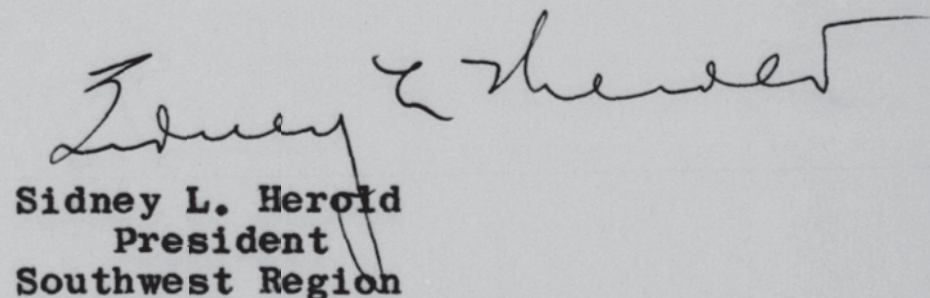 Sidney L Herold
Sidney L. Herold
President
Southwest Region